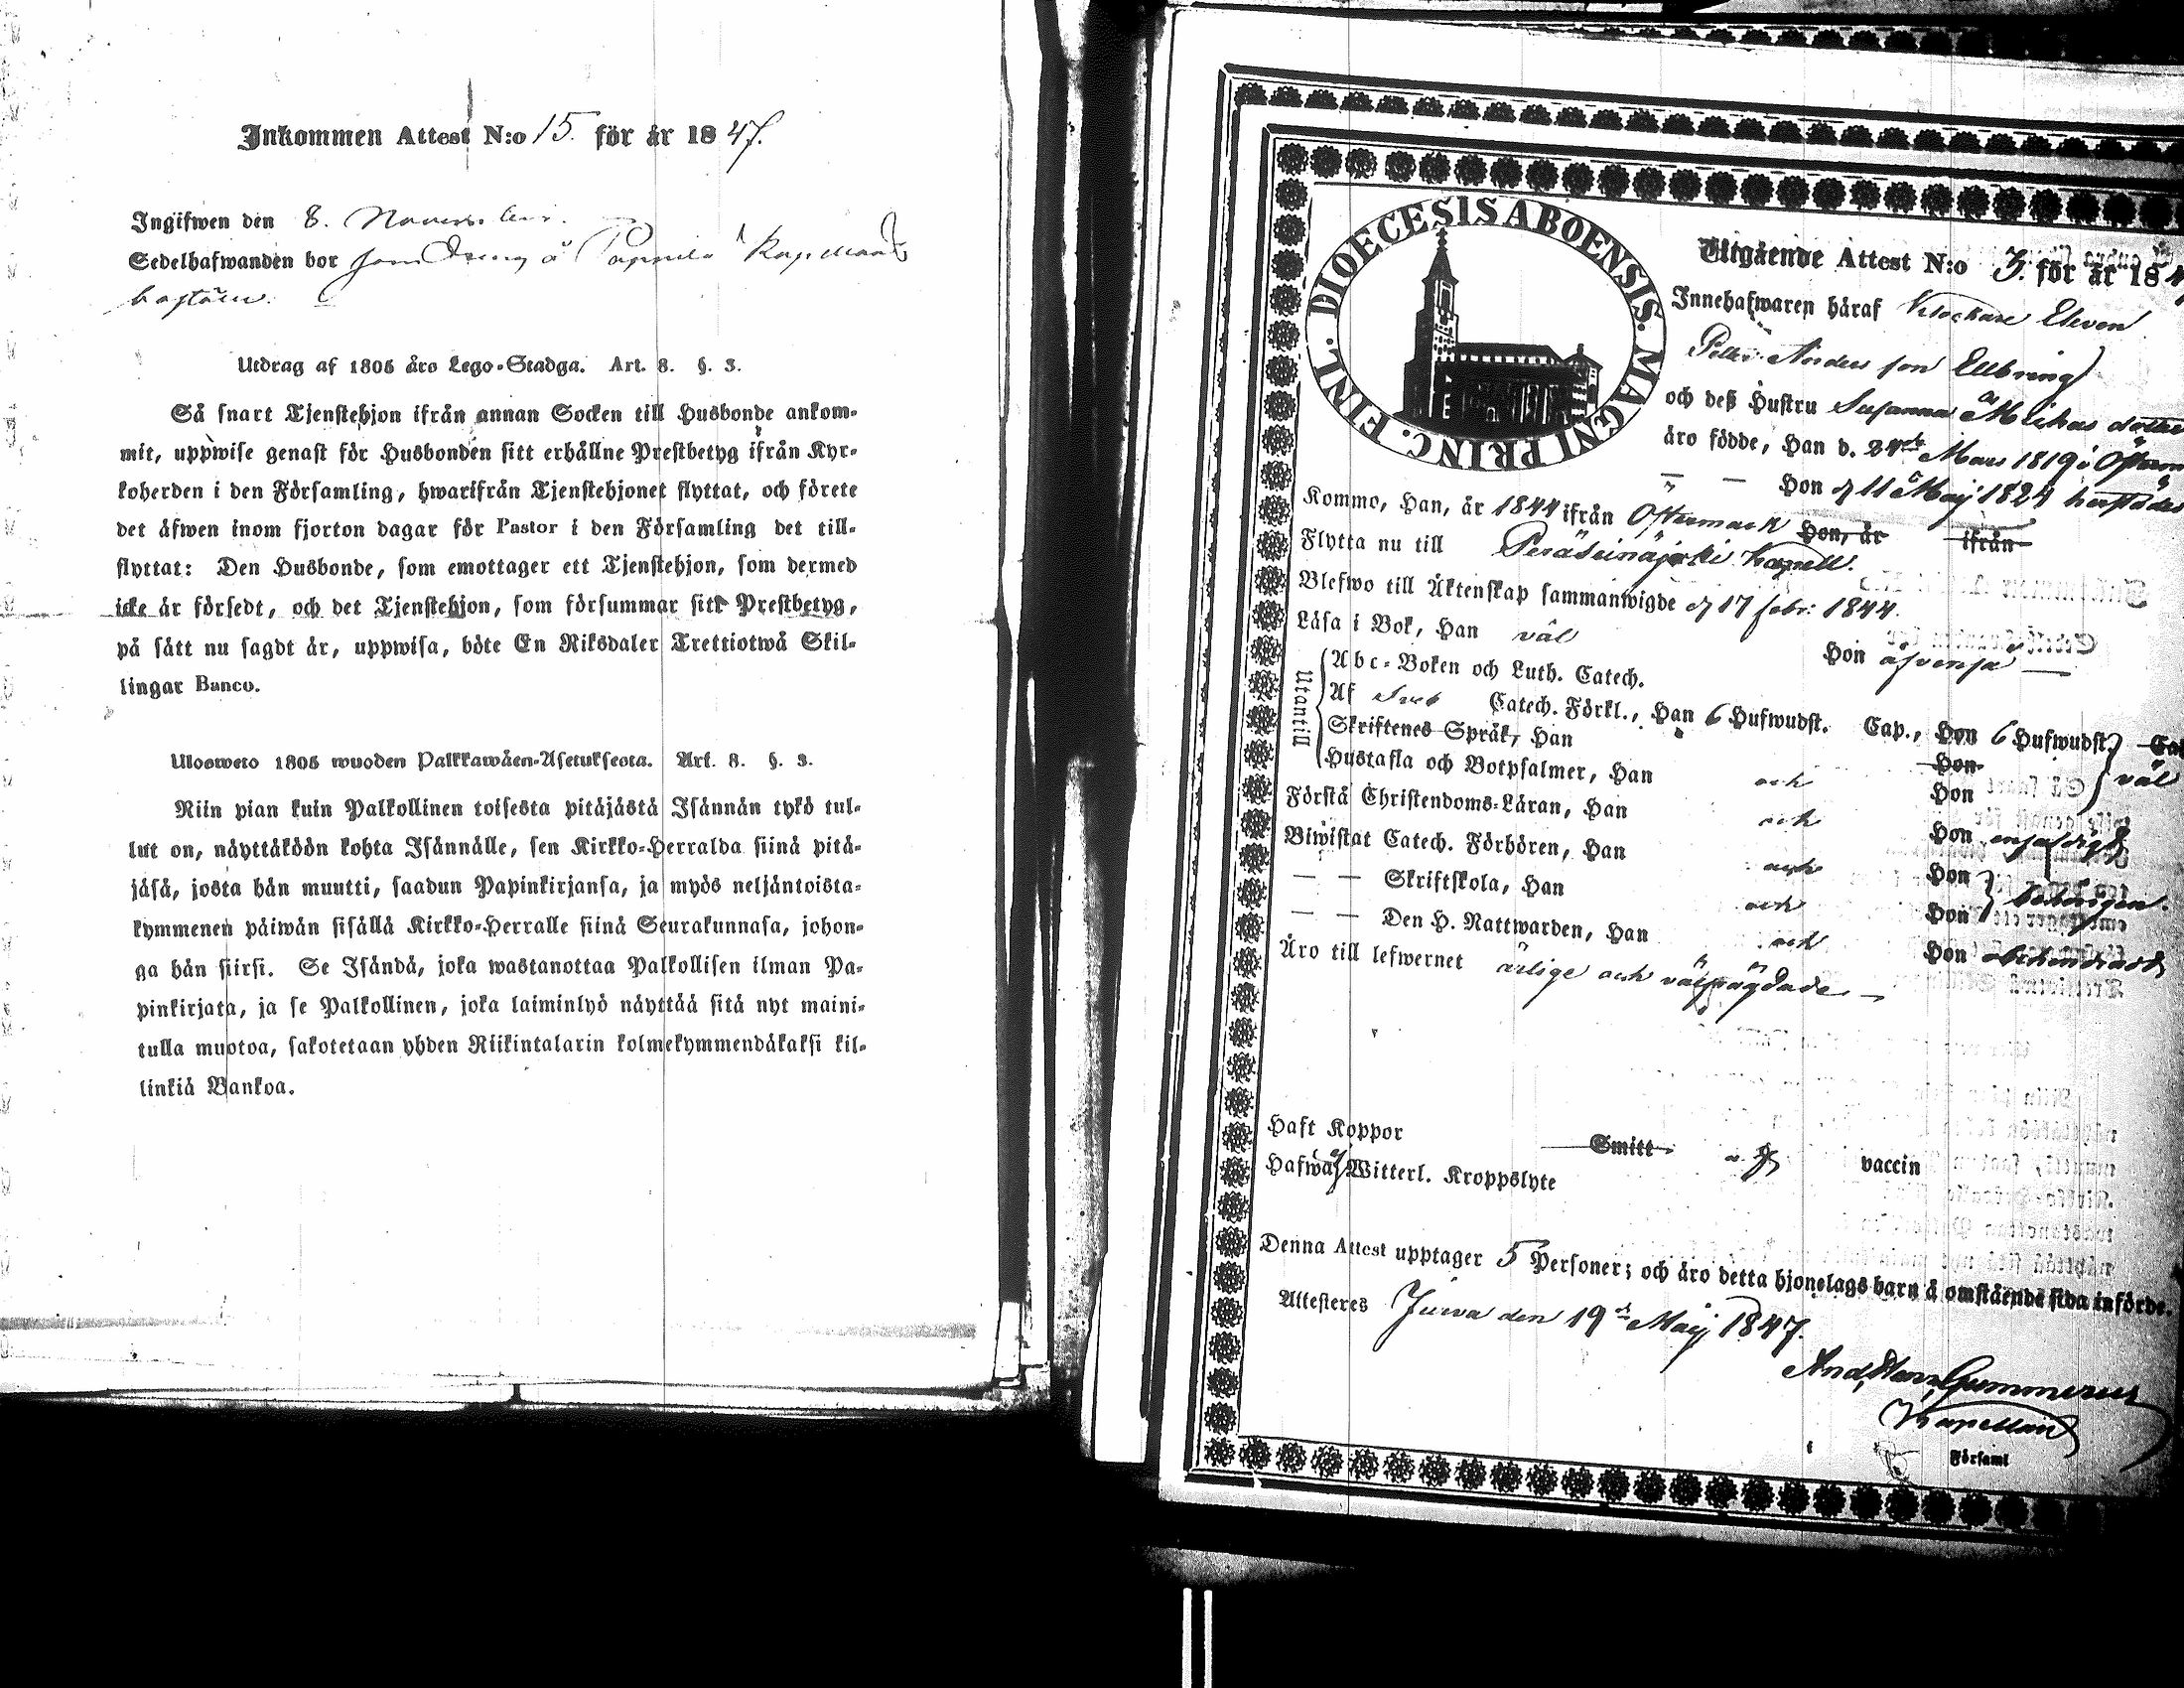 Inkommen Attest N:o 15. för år 1847.
Ingifwen den 8. November.
Sedelhafwanden bor som Dreng å Pappila Kapellans
bostäen.
Utdrag af 1805 års Lego-Stadga. Art. 8. §. 3.
Så snart Tjenstehjon ifrån annan Socken till Husbonde ankom-
mit, uppwise genast för Husbonden sitt erhållne Prestbetyg ifrån Kyr-
koherden i den Församling, hwarifrån Tjenstehjonet flyttat, och förete
det äfwen inom fjorton dagar för Pastor i den Församling det till-
flyttat: Den Husbonde, som emottager ett Tjenstehjon, som dermed
icke är försedt, och det Tjenstehjon, som försummar sitt Prestbetyg,
på sätt nu sagdt är, uppwisa, böte En Riksdaler Trettiotwå Skil-
lingar Banco.
Ulosweto 1805 wuoden Palkkawäen-Asetuksesta. Art. 8. §. 3.
Niin pian kuin Palkollinen toisesta pitäjästä Isännän tykö tul-
lut on, näyttäköön kohta Isännälle, sen Kirkko-Herralda siinä pitä-
jäsä, josta hän muutti, saadun Papinkirjansa, ja myös neljäntoista-
kymmenen päiwän sisällä Kirkko-Herralle siinä Seurakunnasa, johon-
ga hän siirsi. Se Isändä, joka wastanottaa Palkollisen ilman Pa-
pinkirjata, ja se Palkollinen, joka laiminlyö näyttää sitä nyt maini-
tulla muotoa, sakotetaan yhden Riikintalarin kolmekymmendäkaksi kil-
linkiä Bankoa.
DIOECESIS ABOENSIS. MAGNI PRINC. FINL.
Utgående Attest N:o 3. för år 184
Innehafwaren häraf Klockare Eleven
Petter Anders son Ellbring
och deß Hustru Susanna Michas dotter
äro födde, Han d. 24de Mars 1819 i Öfterm
— — Hon d 11 Maij 1824 herstädes
Kommo, Han, år 1844 ifrån Öftermark Hon, år ifrån
Flytta nu till Peräseinäjoki Kapell.
Blefwo till Äktenskap sammanwigde d 17 febr: 1844.
Läsa i Bok, Han väl Hon äfvenså —
Utantill
Abc-Boken och Luth. Catech.
Af Sveb Catech. Förkl., Han 6 Hufwudst. Cap., Hon 6 Hufwudst. Cap
Skriftenes Språk, Han Hon väl
Hustafla och Botpsalmer, Han och Hon
Förstå Christendoms-Läran, Han och Hon enfaldigt
Biwistat Catech. Förhören, Han och Hon
— — Skriftskola, Han och Hon behörigen.
— — Den H. Nattwarden, Han och Hon obehindradt
Äro till lefwernet ärlige och välfrägdade —
Haft Koppor Smitt vaccin
Hafwa ej Witterl. Kroppslyte
Denna Attest upptager 5 Personer; och äro detta hjonelags barn å omstående sida införde.
Attesteres Jurva den 19de Maij 1847.
And. Gummerus
Kapellan
i Församl